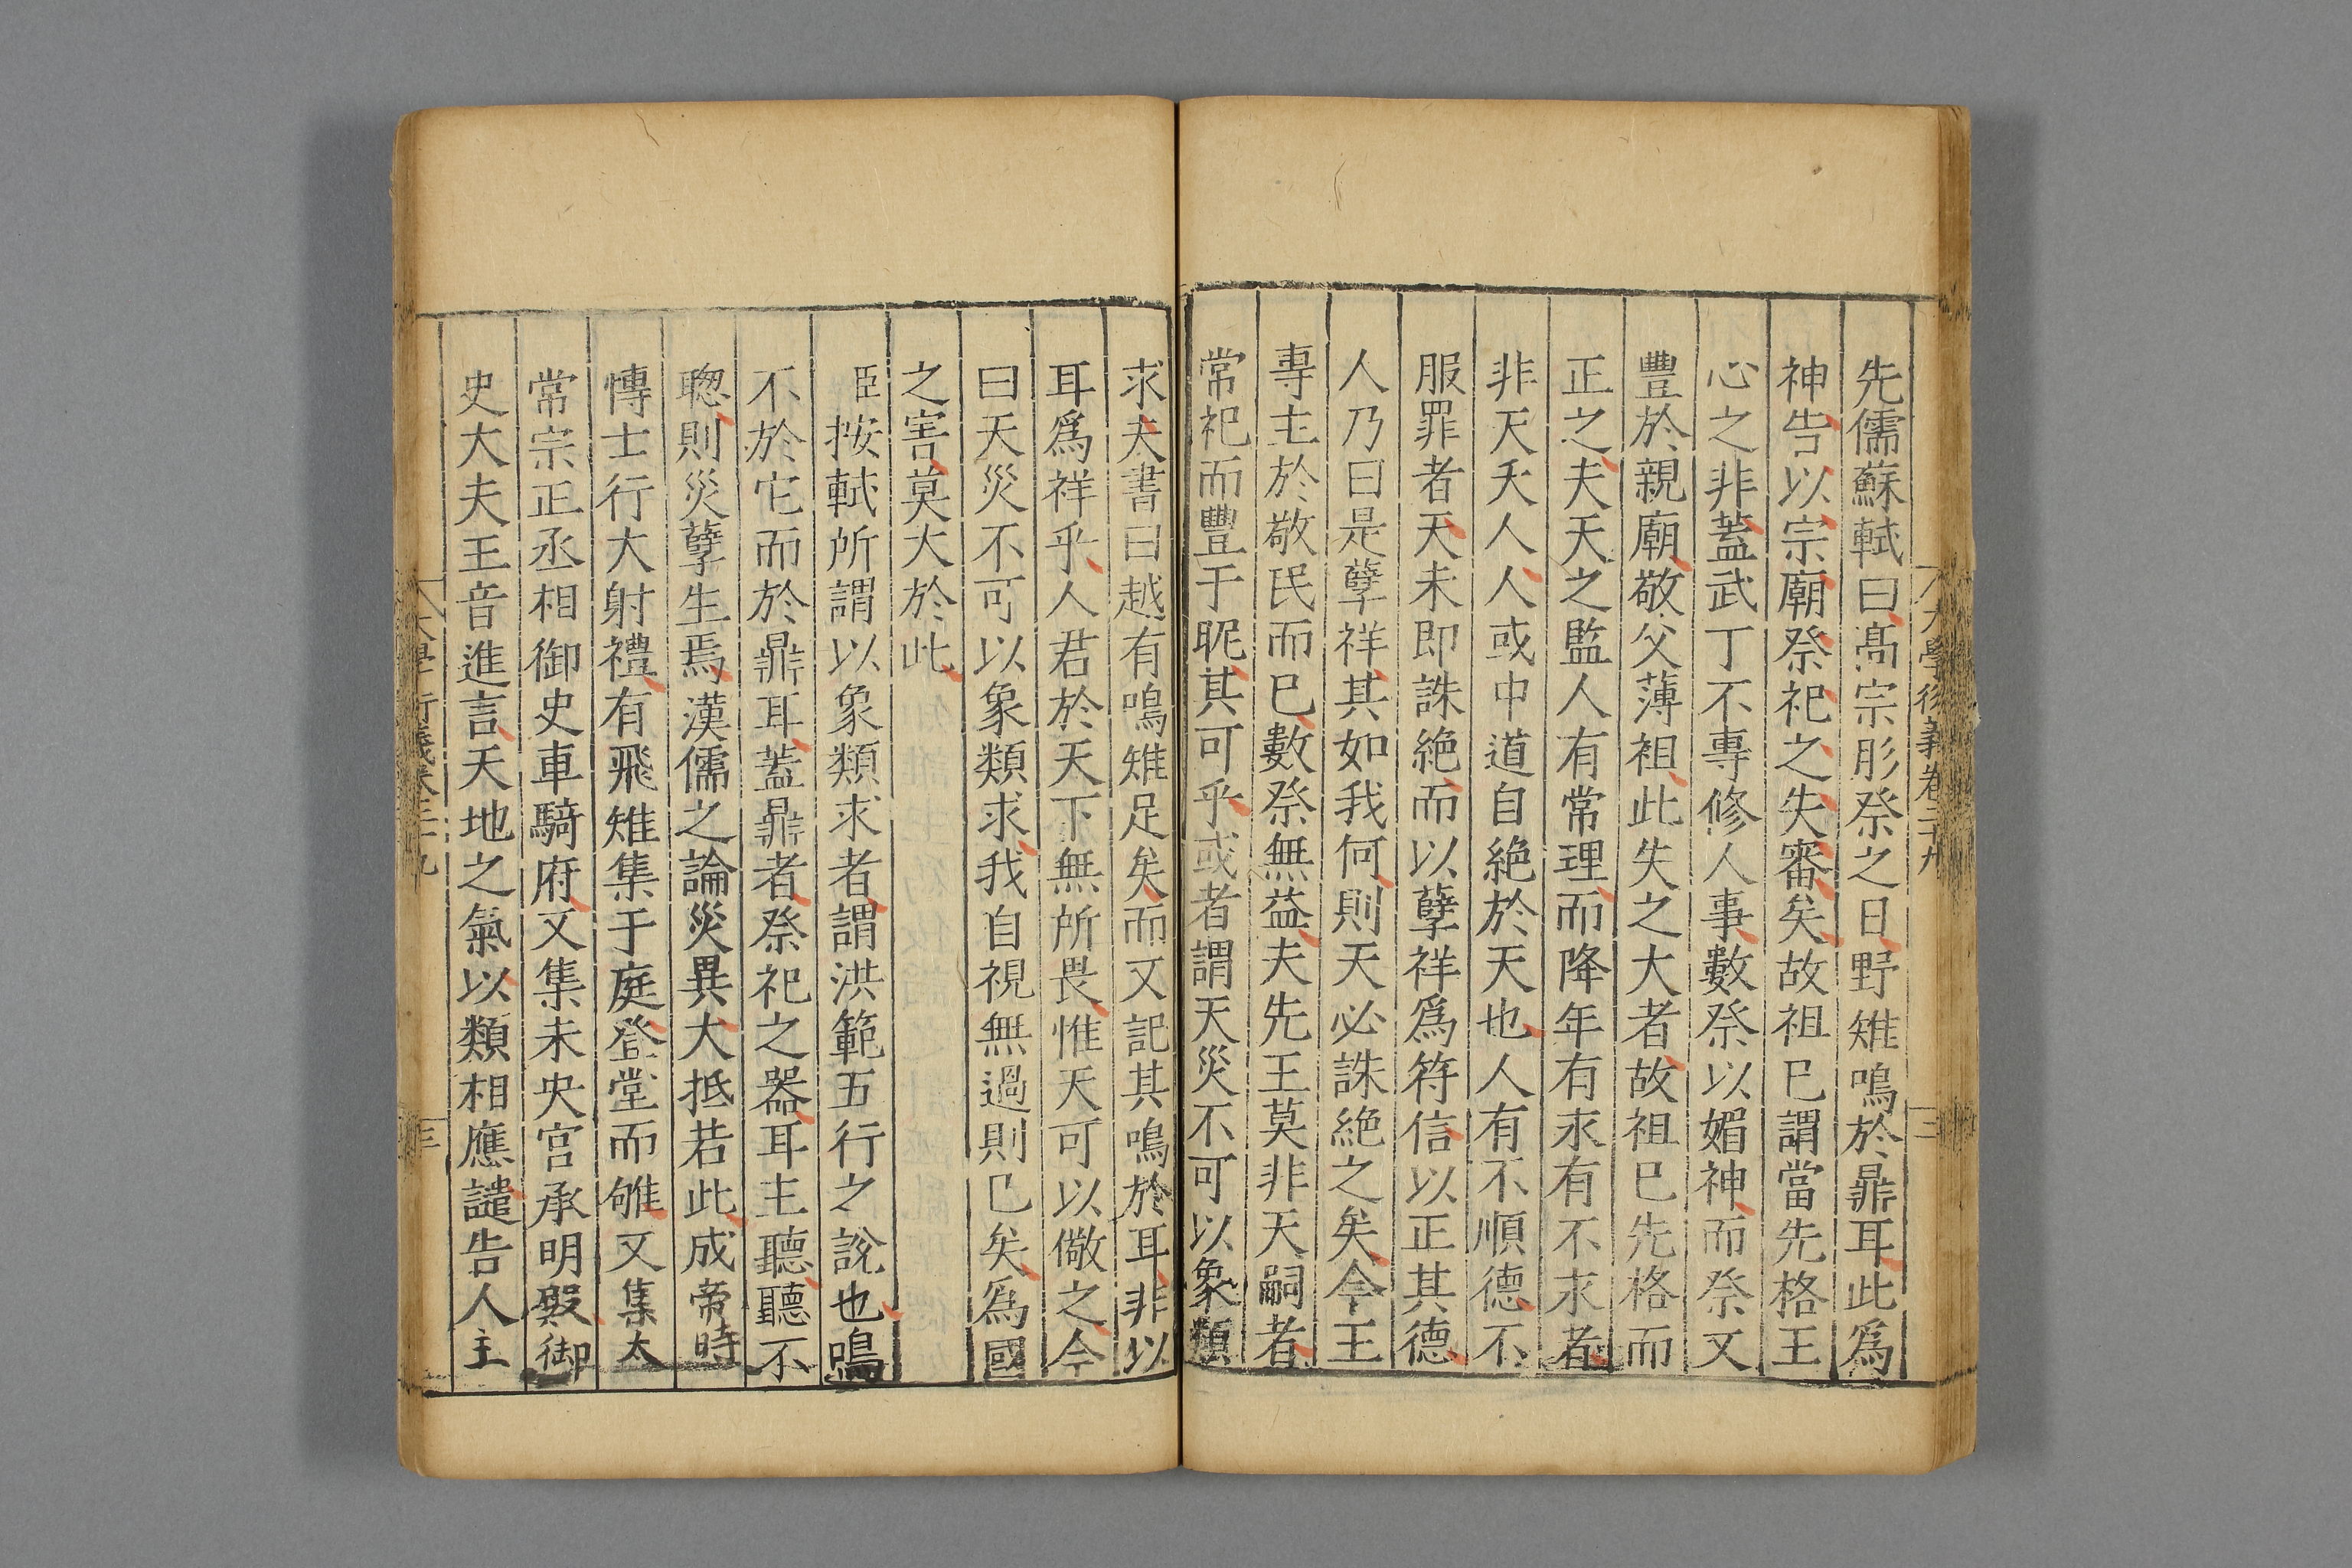 先儒蘇軾曰髙宗肜祭之日野雉鳴於鼎耳此爲
神告以宗廟祭祀之失審矣故祖巳謂當先格王
心之非蓋武丁不專修人事數祭以媚神而祭又
豐於親廟敬父薄祖此失之大者故祖巳先格而
正之夫天之監人有常理而降年有求有不求者
非天夭人人或中道自絶於天也人有不順德不
服罪者天未即誅絶而以孽祥爲符信以正其德
人乃曰是孽祥其如我何則天必誅絶之矣今王
專主於敬民而已數祭無益夫先王莫非天嗣者
常祀而豐于昵其可乎或者謂天災不可以象類
求夫書曰越有鳴雉足矣而又記其鳴於耳非以
耳爲祥乎人君於天下無所畏惟天可以儆之今
曰天災不可以象類求我自視無過則已矣爲國
之害莫大於此
臣按軾所謂以象類求者謂洪範五行之說也鳴
不於它而於鼎耳蓋鼎者祭祀之器耳主聽聽不
聰則災孽生焉漢儒之論災異大抵若此成帝時
博士行大射禮有飛雉集于庭登堂而雊又集太
常宗正丞相御史車騎府又集未央宮承明殿御
史大夫王音進言天地之氣以類相應譴告人主